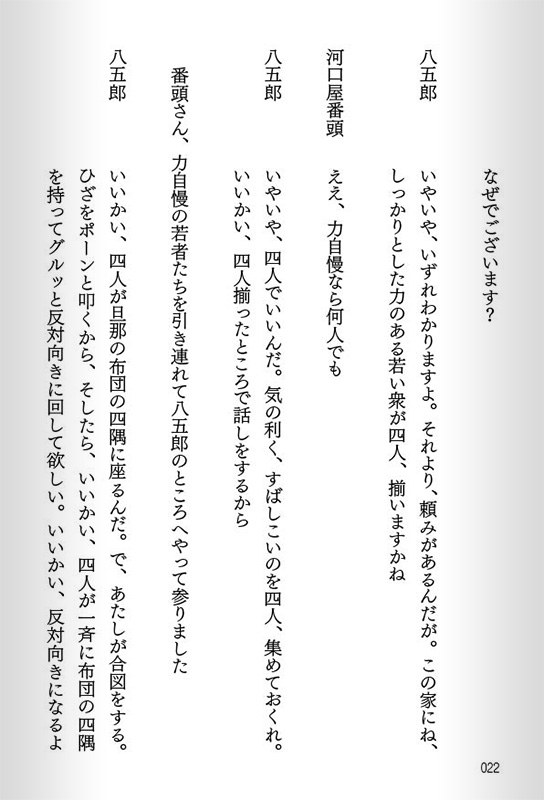 なぜでございます？
八五郎　いやいや、いずれわかりますよ。それより、頼みがあるんだが。この家にね、
しっかりとした力のある若い衆が四人、揃いますかね
河口屋番頭　ええ、力自慢なら何人でも
八五郎　いやいや、四人でいいんだ。気の利く、すばしこいのを四人、集めておくれ。
いいかい、四人揃ったところで話しをするから
番頭さん、力自慢の若者たちを引き連れて八五郎のところへやって参りました
八五郎　いいかい、四人が旦那の布団の四隅に座るんだ。で、あたしが合図をする。
ひざをポーンと叩くから、そしたら、いいかい、四人が一斉に布団の四隅
を持ってグルッと反対向きに回して欲しい。いいかい、反対向きになるよ
022